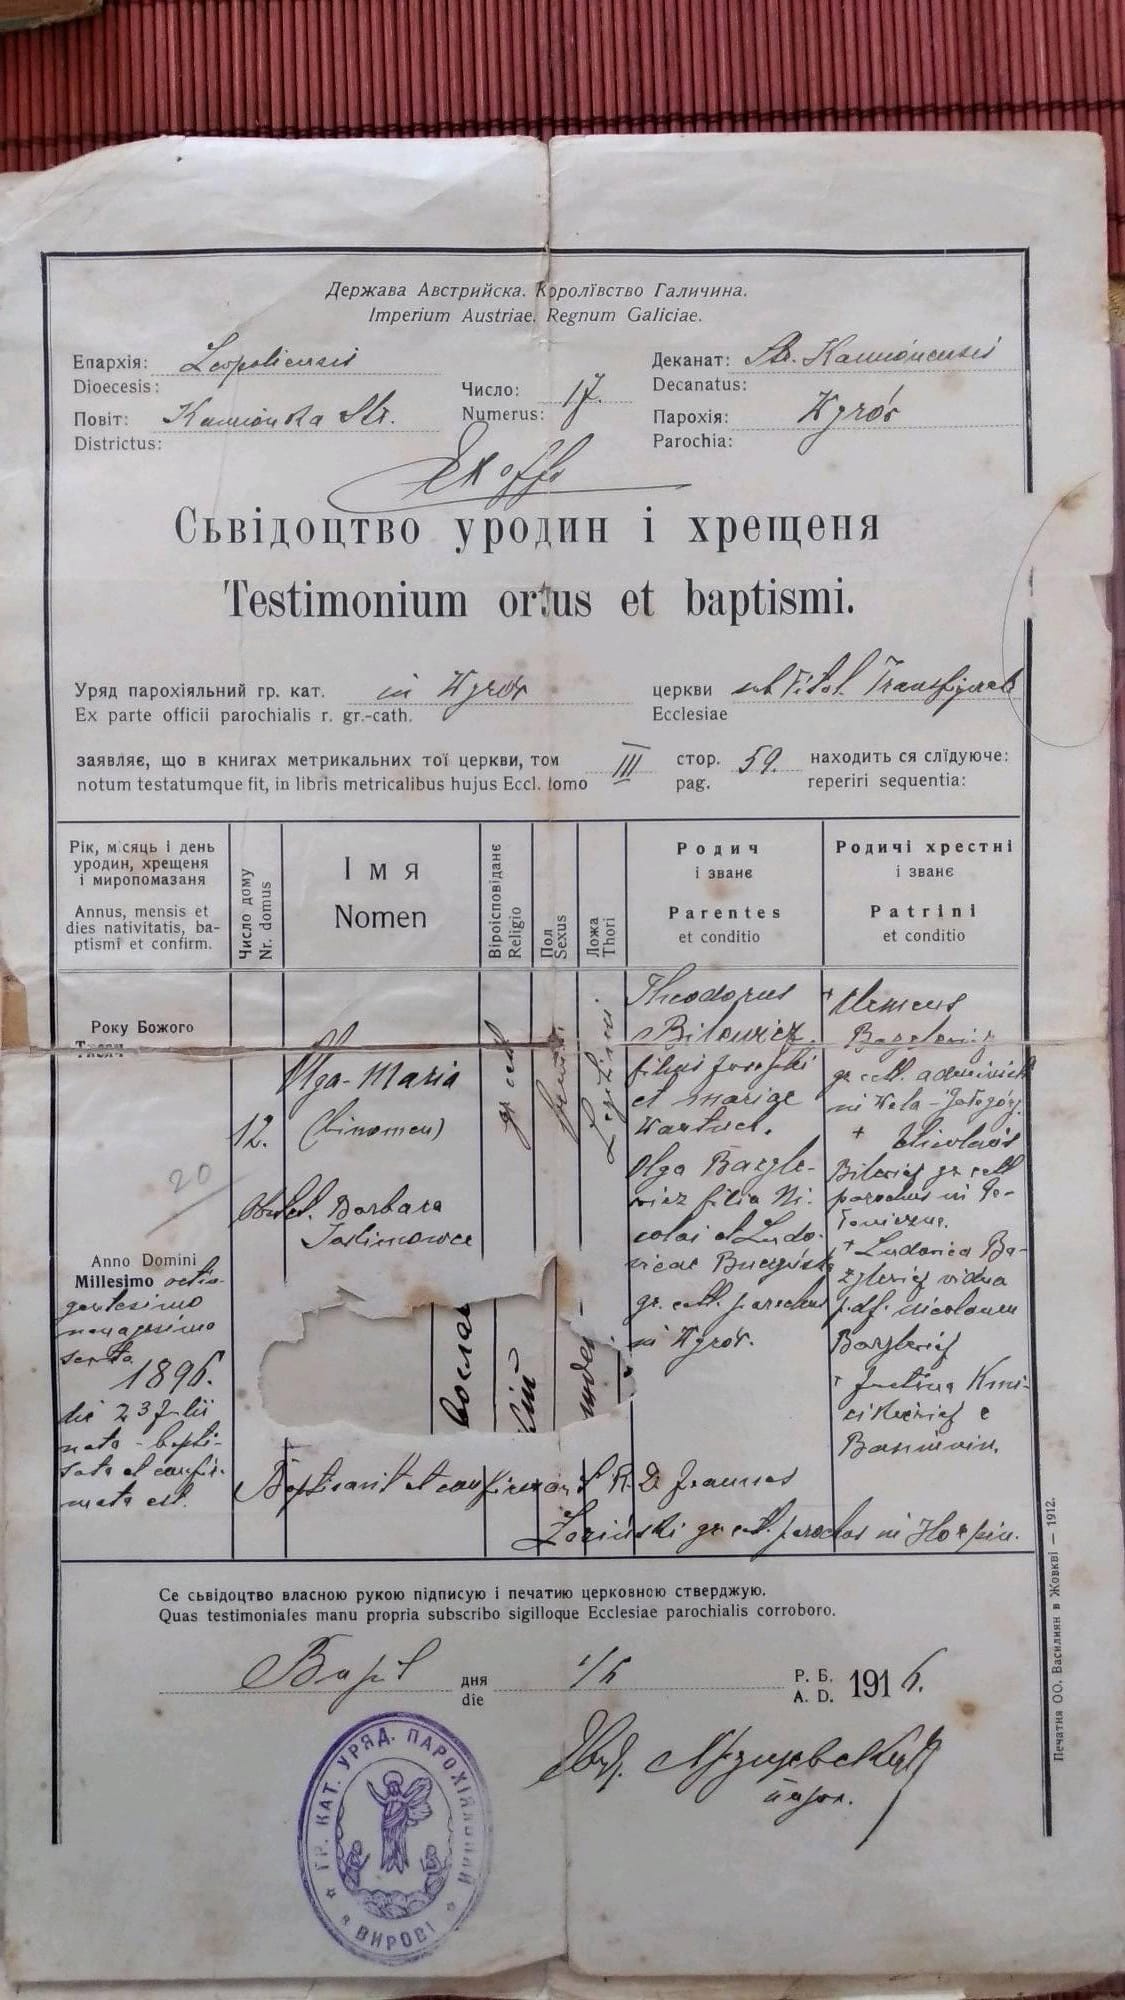 Держава Австрийска. Королївство Галичина.
Imperium Austriae. Regnum Galiciae.
Епархія: Leopoliensis
Dioecesis:
Деканат: Str. Kamionensis
Decanatus:
Число: 17.
Numerus:
Повіт: Kamionka Str.
Districtus:
Парохія: Wyrów
Parochia:
Ex offo
Сьвідоцтво уродин і хрещеня
Testimonium ortus et baptismi.
Уряд парохіяльний гр. кат. in Wyrów церкви sub Tit. Transfigurat
Ex parte officii parochialis r. gr.-cath. Ecclesiae
заявляє, що в книгах метрикальних тої церкви, том III стор. 59. находить ся слїдуюче:
notum testatumque fit, in libris metricalibus hujus Eccl. tomo pag. reperiri sequentia:
Рік, місяць і день
уродин, хрещеня
і миропомазаня
Annus, mensis et
dies nativitatis, ba-
ptismi et confirm.
Число дому
Nr. domus
Імя
Nomen
Віроісповіданє
Religio
Пол
Sexus
Ложа
Thori
Родич
і званє
Parentes
et conditio
Родичі хрестні
і званє
Patrini
et conditio
Року Божого
Тисяч
20
Anno Domini
Millesimo octin-
gentesimo
nonagesimo
sexto
1896.
die 23 Julii
nata - bapti-
sata et confir-
mata est.
12.
Olga-Maria
(binomen)
Obstet. Barbara
gr. cat.
Legitimi.
Theodorus
Bilewicz.
filius Josephi
et Mariae
Olga Bazyle-
wicz filia Ni-
colai et Ludo-
vicae
gr. catt. parochus
in Wyrów.
+ Clemens
Bazylewicz
gr. catt. administ
+ Nicolaus
Bilewicz gr. catt
parochus in
+ Ludovica Ba-
zylewicz vidua
p. df. Nicolaum
Bazylewicz
+ Justina
Baptisavit et confirmavit R. D. Joannes
Łoziński gr. catt. parochus in Horpin.
Се сьвідоцтво власною рукою підписую і печатию церковною стверджую.
Quas testimoniales manu propria subscribo sigilloque Ecclesiae parochialis corroboro.
дня 1/6 Р. Б. 1916.
die A. D.
парох.
ГР. КАТ. УРЯД. ПАРОХІЯЛЬНИЙ
в ВИРОВІ
Печатня ОО. Василиян в Жовкві — 1912.